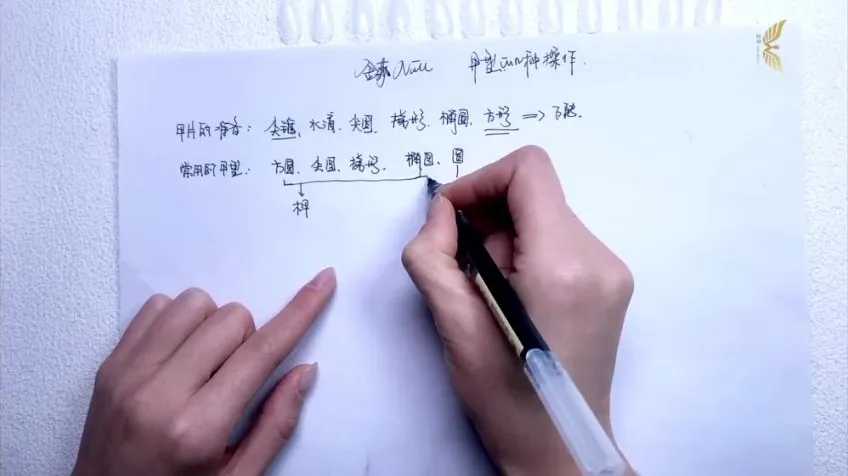 Nail 甲型的种操作.
甲片的: 尖锥, 水滴. 尖圆. 梯形. 椭圆. 方形 =>
常用的甲型: 方圆. 尖圆. 梯形. 椭圆. 圆